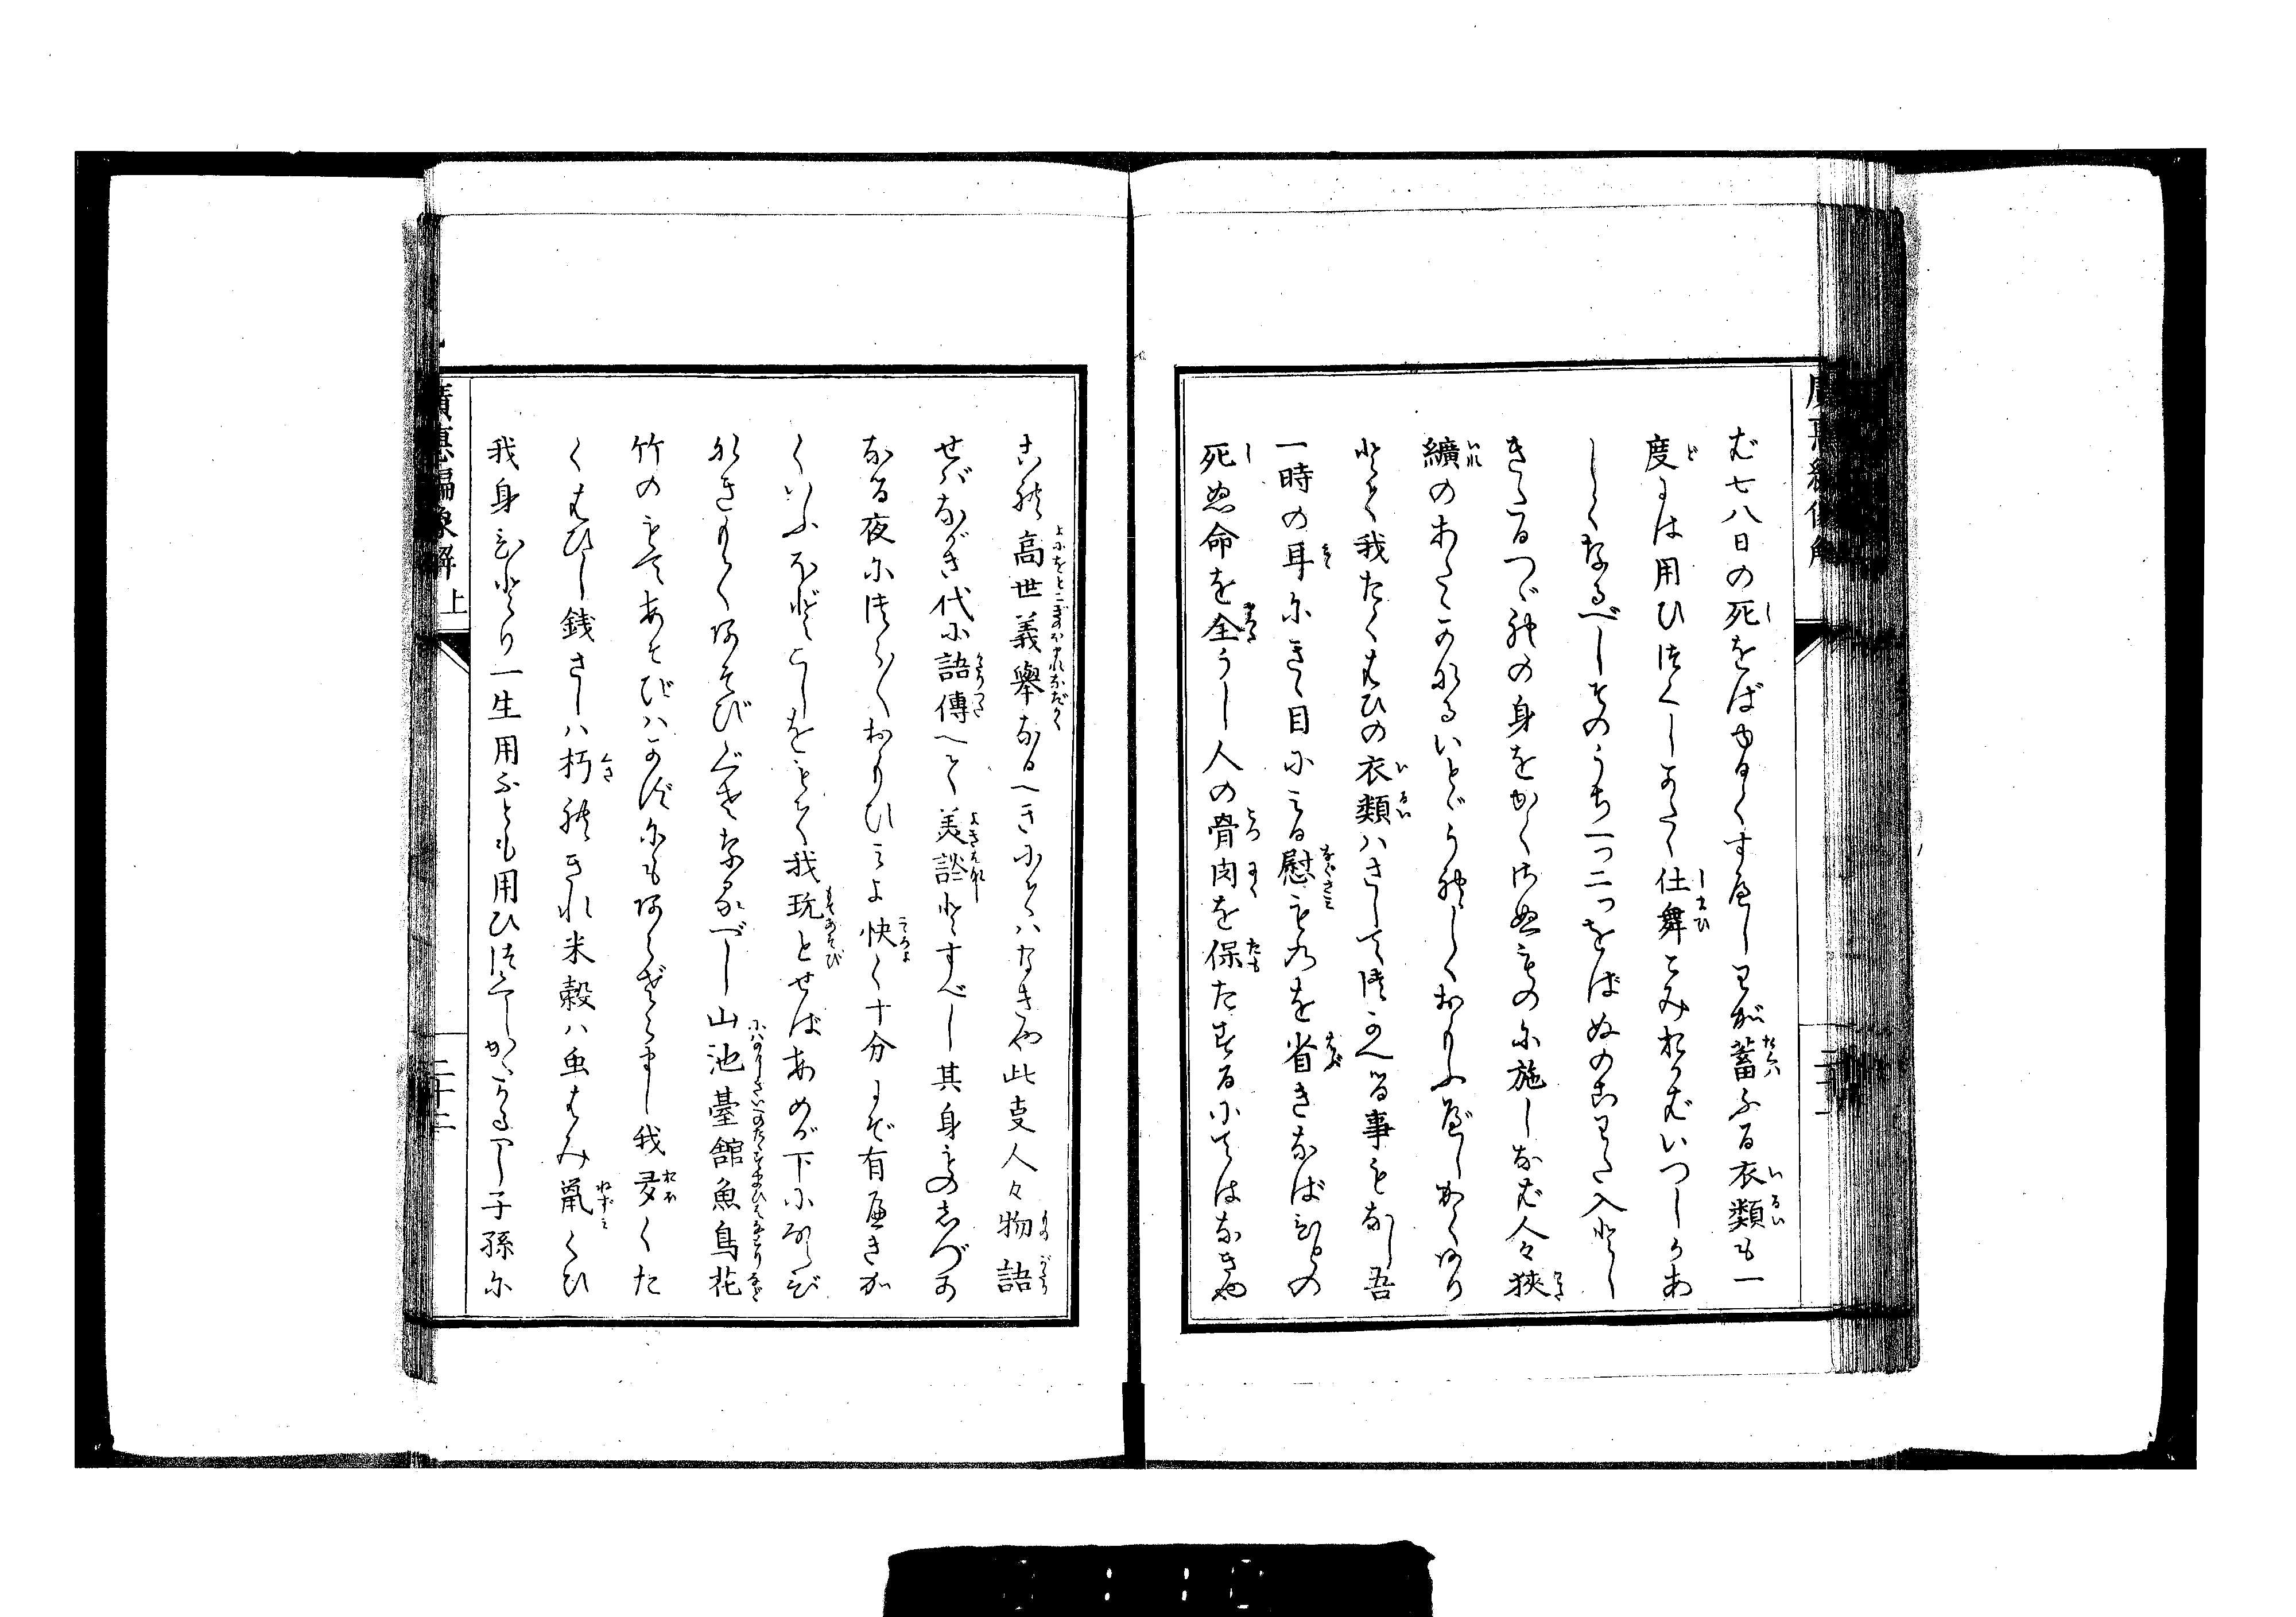 む七八日の死をばゆるくすべしわが蓄ふる衣類も一
度には用ひ尽くしがたく仕舞こみおかむいつしかあ
しくなるべしそのうち一つ二つをばぬのこわた入とし
きたるつゞれの身をかくさぬものに施しなむ人々狭
纊のあたゝかなるいとゞうれしくおもふべしかくあり
とて我たくはひの衣類はさして障へる事もなし吾
一時の耳にきゝ目にみる慰ものを省きなばひとの
死ぬ命を全うし人の骨肉を保たするにてはなきや
これ高世義舉なるへきにてはなきや此事人々物語
せばながき代に語傳へて美談とすべし其身ものしづか
なる夜につらつらおもひみよ快く十分にぞ有べきか
くいふほどこしをもて我玩とせばあめが下にならび
なきよくあそびぐさなるべし山池臺館魚鳥花
竹のもてあそびはかずにもあらざらまし我多くた
くはひし銭さしは朽れきれ米穀は虫はみ鼠くひ
我身ひとり一生用ふとも用ひ尽しがたかるべし子孫に
廣惠編象解 上
二十二